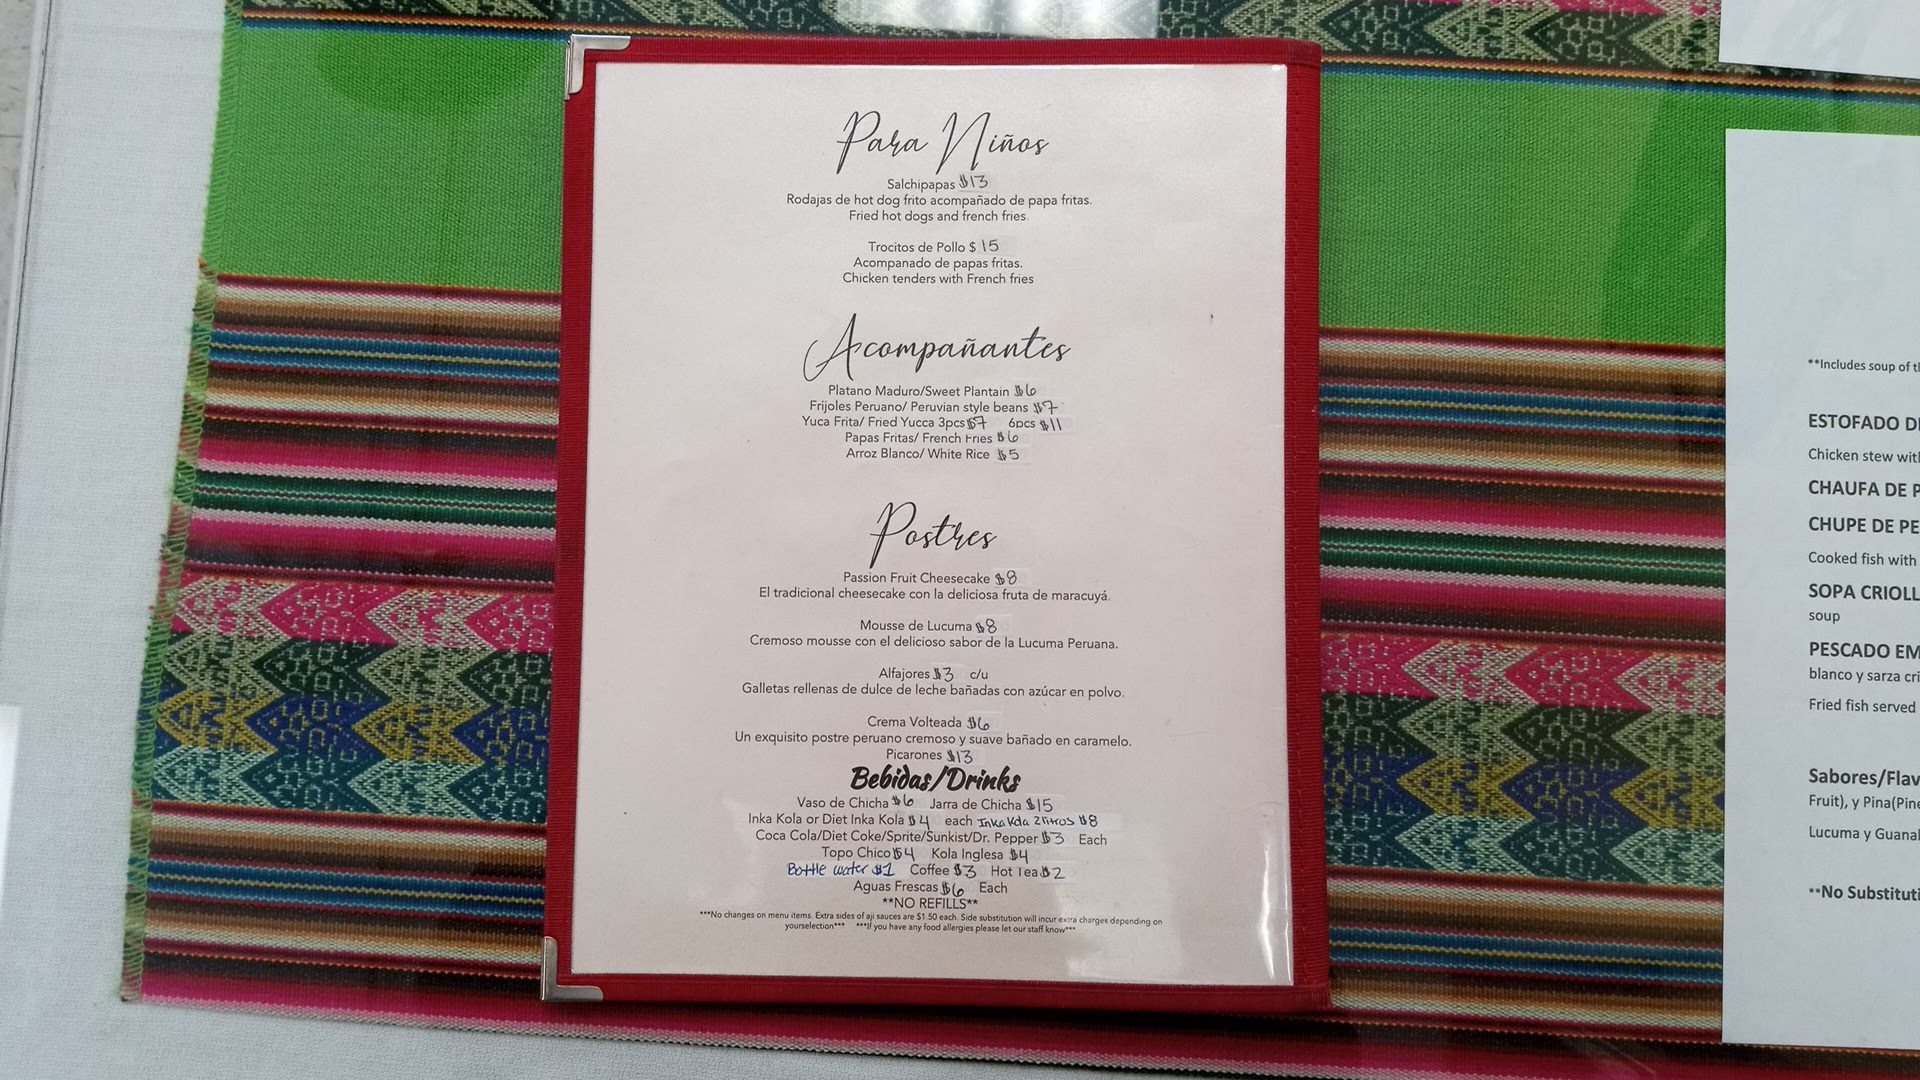 Para Niños
Salchipapas $13
Rodajas de hot dog frito acompañado de papa fritas.
Fried hot dogs and french fries.
Trocitos de Pollo $ 15
Acompanado de papas fritas.
Chicken tenders with French fries
Acompañantes
Platano Maduro/Sweet Plantain $6
Frijoles Peruano/ Peruvian style beans $7
Yuca Frita/ Fried Yucca 3pcs $7 6pcs $11
Papas Fritas/ French Fries $6
Arroz Blanco/ White Rice $5
Postres
Passion Fruit Cheesecake $8
El tradicional cheesecake con la deliciosa fruta de maracuyá.
Mousse de Lucuma $8
Cremoso mousse con el delicioso sabor de la Lucuma Peruana.
Alfajores $3 c/u
Galletas rellenas de dulce de leche bañadas con azúcar en polvo.
Crema Volteada $6
Un exquisito postre peruano cremoso y suave bañado en caramelo.
Picarones $13
Bebidas/Drinks
Vaso de Chicha $6 Jarra de Chicha $15
Inka Kola or Diet Inka Kola $4 each Inka Kola 2 litros $8
Coca Cola/Diet Coke/Sprite/Sunkist/Dr. Pepper $3 Each
Topo Chico $4 Kola Inglesa $4
Bottle water $1 Coffee $3 Hot Tea $2
Aguas Frescas $6 Each
**NO REFILLS**
***No changes on menu items. Extra sides of aji sauces are $1.50 each. Side substitution will incur extra charges depending on
yourselection*** ***If you have any food allergies please let our staff know***
**Includes soup of
ESTOFADO
Chicken stew
CHAUFA DE
CHUPE DE
Cooked fish with
SOPA
soup
PESCADO
blanco y sarza
Fried fish served
Sabores/
Fruit), y
Lucuma y
**No